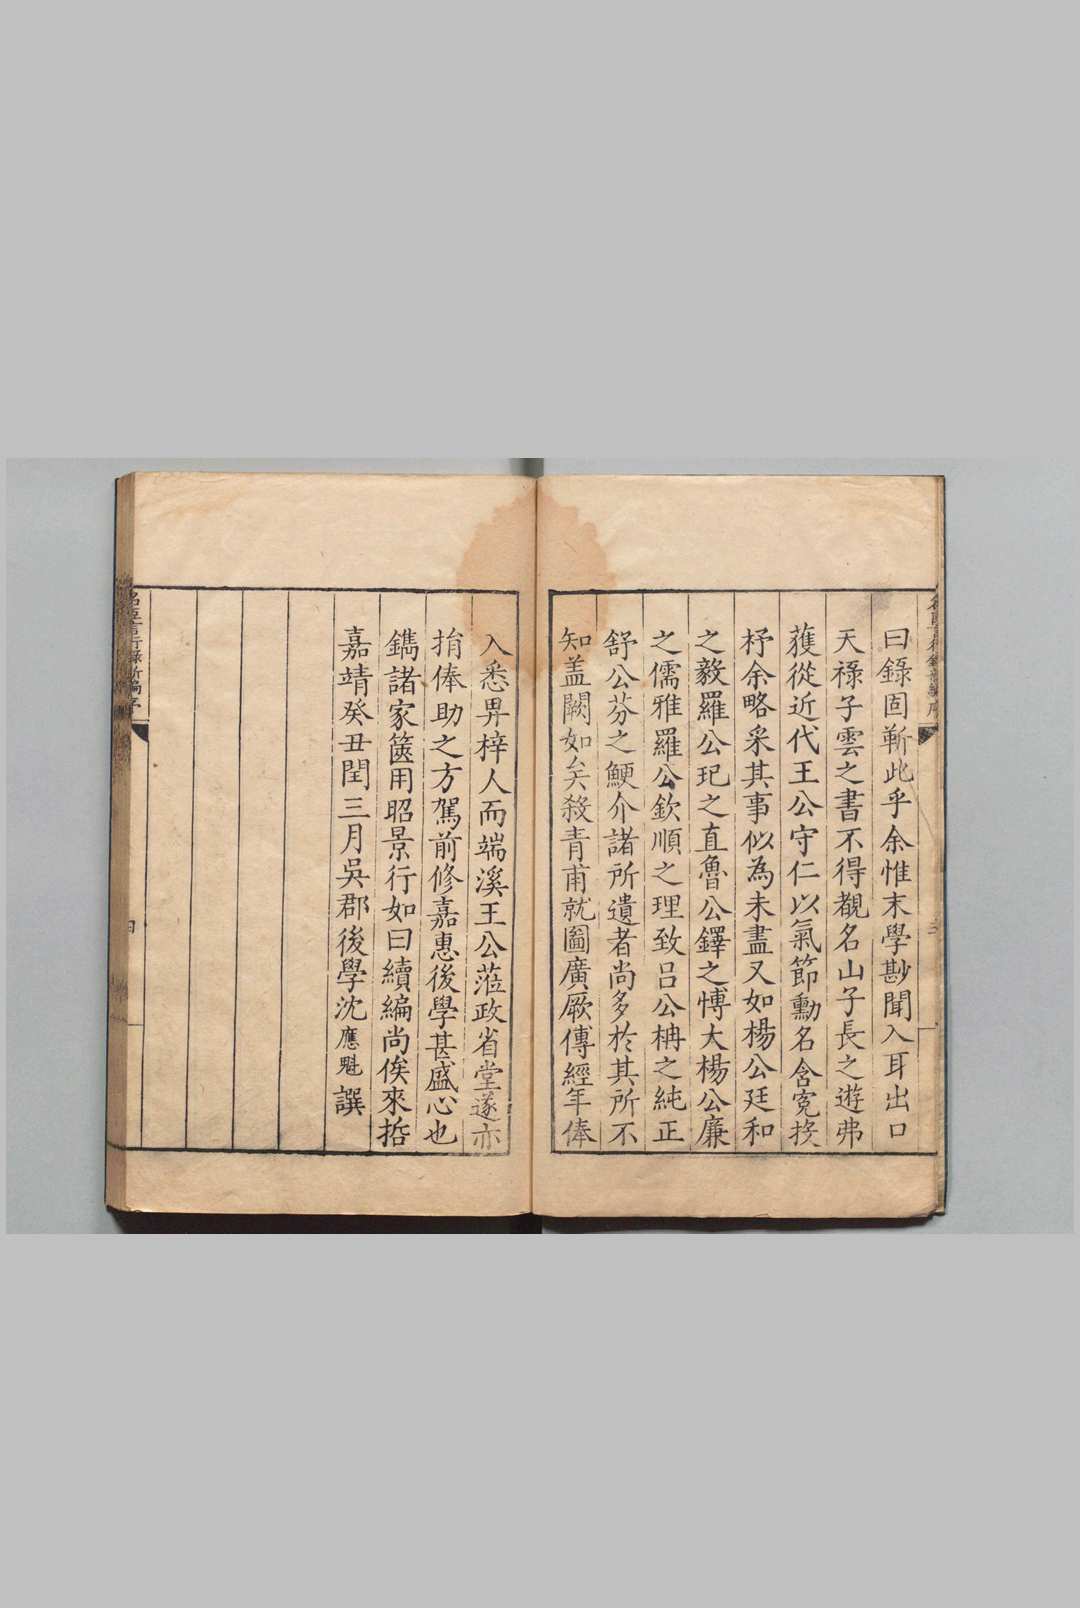 曰錄固靳此乎余惟末學尠聞入耳出口
天祿子雲之書不得覩名山子長之遊弗
獲從近代王公守仁以氣節勳名含寃投
杼余略采其事似為未盡又如楊公廷和
之毅羅公玘之直魯公鐸之博大楊公廉
之儒雅羅公欽順之理致呂公柟之純正
舒公芬之鯁介諸所遺者尚多於其所不
知盖闕如矣殺青甫就圖廣厥傳經年俸
入悉畀梓人而端溪王公蒞政省堂遂亦
捐俸助之方駕前修嘉惠後學甚盛心也
鐫諸家篋用昭景行如曰續編尚俟來哲
嘉靖癸丑閏三月吳郡後學沈應魁譔
名臣言行錄新編序
四